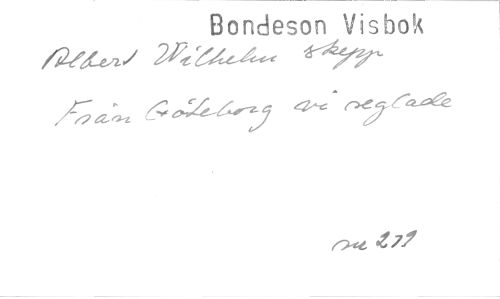 Bondeson Visbok
Albert Wilhelm skepp
Från Göteborg vi seglade
nr 279